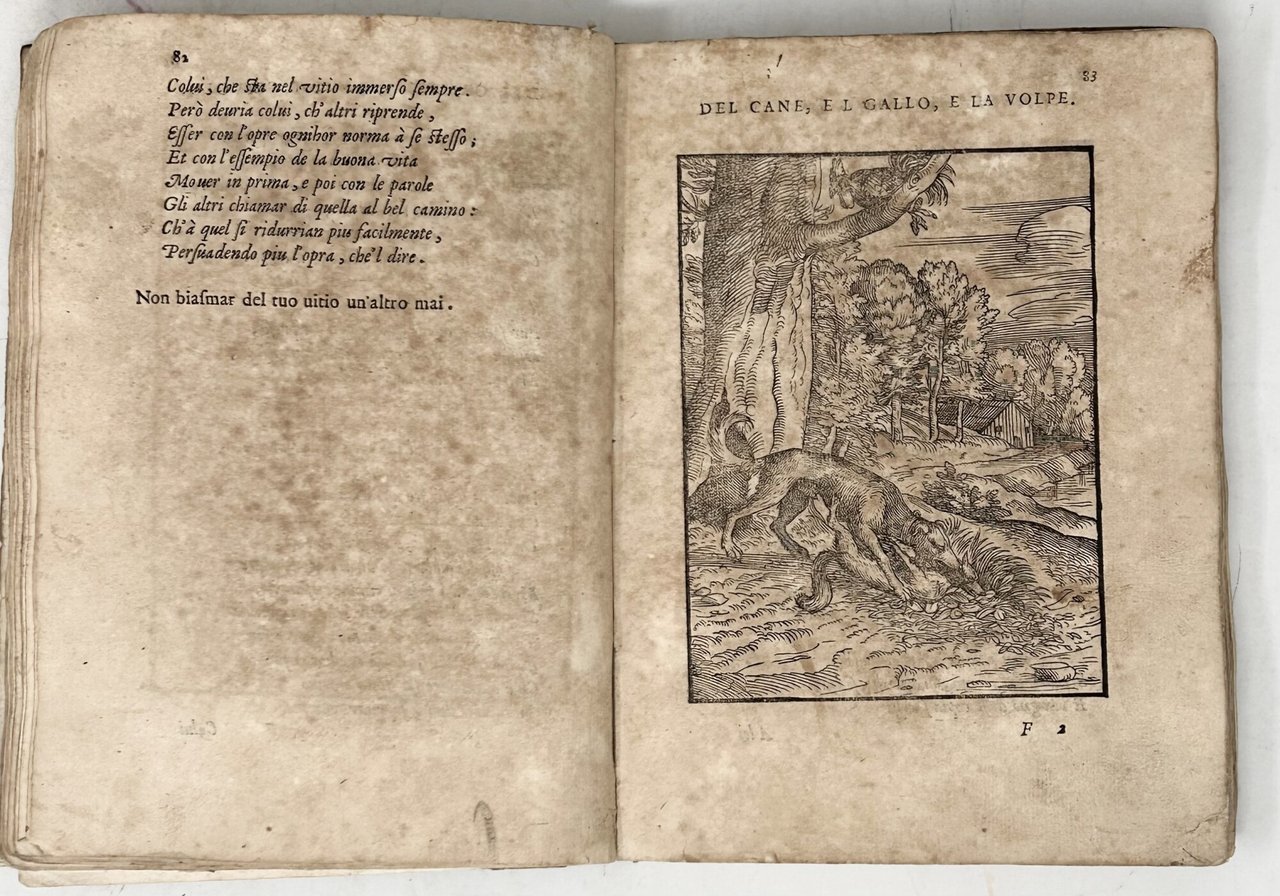 82
Colui, che sta nel vitio immerso sempre.
Però deuria colui, ch'altri riprende,
Esser con l'opre ognihor norma à se stesso;
Et con l'essempio de la buona vita
Mouer in prima, e poi con le parole
Gli altri chiamar di quella al bel camino:
Ch'à quel si ridurrian piu facilmente,
Persuadendo piu l'opra, che'l dire.
Non biasmar del tuo uitio un'altro mai.
83
DEL CANE, E L GALLO, E LA VOLPE.
F 2